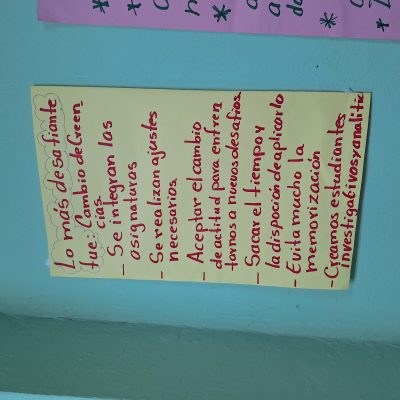 Lo más desafiante
fue: Cambio de Creen
cias
- Se integran las
asignaturas
- Se realizan ajustes
necesarios
- Aceptar el cambio
de actitud para enfren
tarnos a nuevos desafios
- Sacar el tiempo y
la disposición de aplicarlo
- Evita mucho la
memorización
- Creamos estudiantes
investigativos y analitic